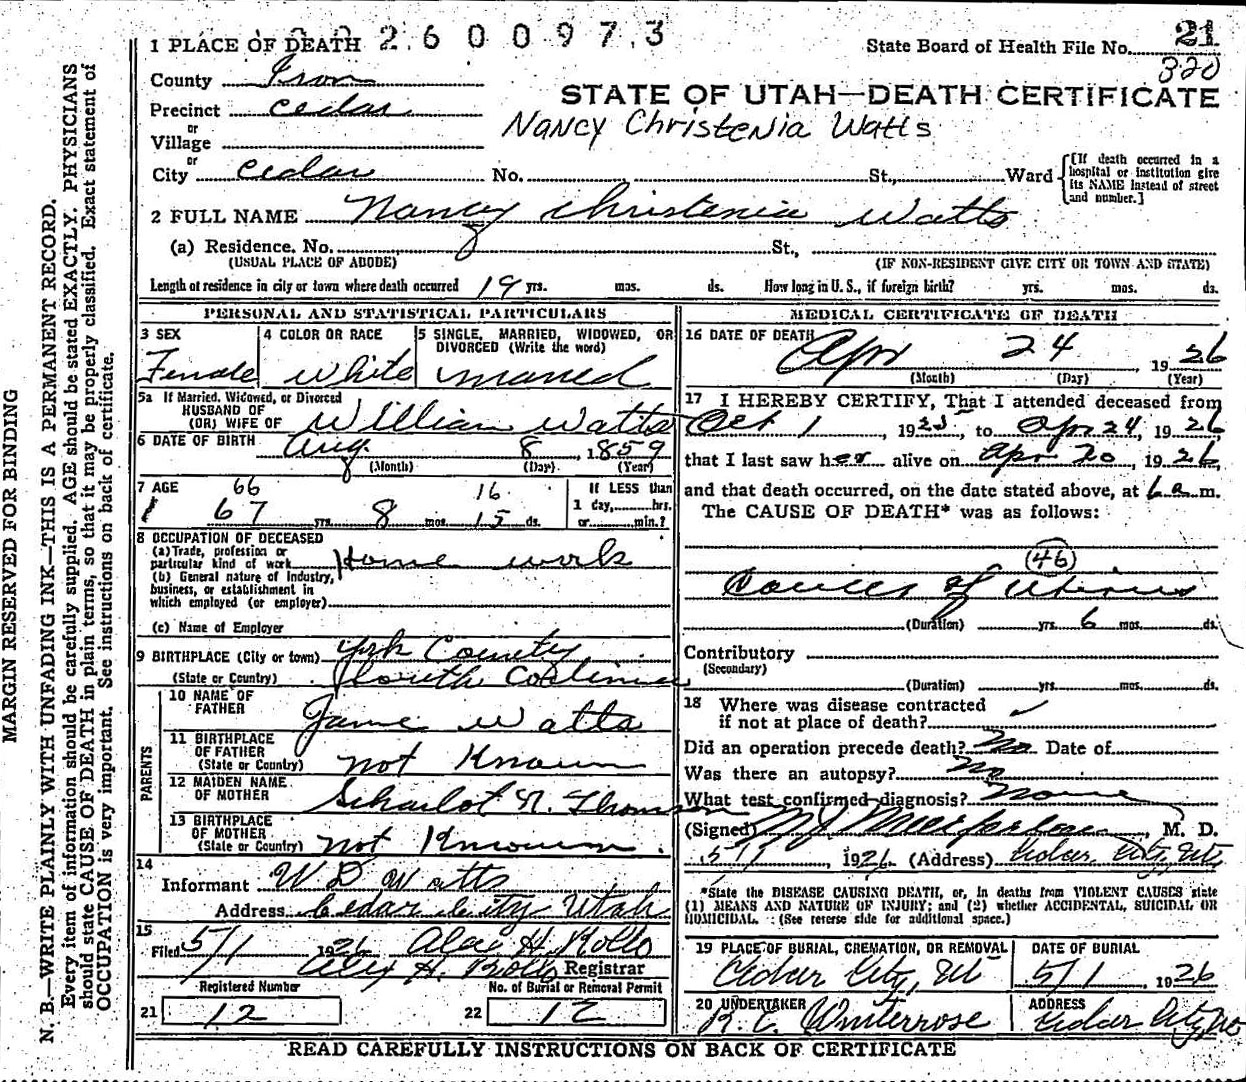 1 PLACE OF DEATH 2600973
State Board of Health File No. 21
320
County Iron
STATE OF UTAH—DEATH CERTIFICATE
Precinct Cedar
Nancy Christenia Watts
or
Village
or
City Cedar No. St., Ward
[If death occurred in a
hospital or institution give
its NAME instead of street
and number.]
2 FULL NAME Nancy Christenia Watts
(a) Residence. No. St.,
(USUAL PLACE OF ABODE) (IF NON-RESIDENT GIVE CITY OR TOWN AND STATE)
Length of residence in city or town where death occurred 19 yrs. mos. ds. How long in U. S., if foreign birth? yrs. mos. ds.
PERSONAL AND STATISTICAL PARTICULARS
3 SEX
Female
4 COLOR OR RACE
White
5 SINGLE, MARRIED, WIDOWED, OR
DIVORCED (Write the word)
married
5a If Married, Widowed, or Divorced
HUSBAND OF
(OR) WIFE OF William Watts
6 DATE OF BIRTH Aug. 8, 1859
(Month) (Day) (Year)
7 AGE 66 16
67 yrs. 8 mos. 15 ds.
If LESS than
1 day,......hrs.
or......min.?
8 OCCUPATION OF DECEASED
(a) Trade, profession or
particular kind of work Home work
(b) General nature of industry,
business, or establishment in
which employed (or employer)
(c) Name of Employer
9 BIRTHPLACE (City or town) York County
(State or Country) South Carolina
PARENTS
10 NAME OF
FATHER Jame Watts
11 BIRTHPLACE
OF FATHER
(State or Country) not Known
12 MAIDEN NAME
OF MOTHER Scharlot N. Thomson
13 BIRTHPLACE
OF MOTHER
(State or Country) not Known.
14
Informant W D Watts
Address Cedar City Utah
15
Filed 5/1 1926 Alex H. Rollo
Alex H. Rollo Registrar
Registered Number No. of Burial or Removal Permit
21 12 22 12
MEDICAL CERTIFICATE OF DEATH
16 DATE OF DEATH Apr 24 1926
(Month) (Day) (Year)
17 I HEREBY CERTIFY, That I attended deceased from
Oct 1, 1925, to Apr 24, 1926,
that I last saw her alive on Apr 20, 1926,
and that death occurred, on the date stated above, at 6 a.m.
The CAUSE OF DEATH* was as follows:
(46)
Cancer of Uterus
(Duration) yrs. 6 mos. ds.
Contributory
(Secondary)
(Duration) yrs. mos. ds.
18 Where was disease contracted
if not at place of death?
Did an operation precede death? No Date of
Was there an autopsy? No
What test confirmed diagnosis? None
(Signed) M J Macfarlane, M. D.
5/1, 1926 (Address) Cedar City, Ut
*State the DISEASE CAUSING DEATH, or, in deaths from VIOLENT CAUSES state
(1) MEANS AND NATURE OF INJURY; and (2) whether ACCIDENTAL, SUICIDAL OR
HOMICIDAL. (See reverse side for additional space.)
19 PLACE OF BURIAL, CREMATION, OR REMOVAL
Cedar City, Ut
DATE OF BURIAL
5/1, 1926
20 UNDERTAKER
R. C. Whiterrose
ADDRESS
Cedar City, Ut
READ CAREFULLY INSTRUCTIONS ON BACK OF CERTIFICATE
MARGIN RESERVED FOR BINDING
N. B.—WRITE PLAINLY WITH UNFADING INK—THIS IS A PERMANENT RECORD.
Every item of information should be carefully supplied. AGE should be stated EXACTLY. PHYSICIANS
should state CAUSE OF DEATH in plain terms, so that it may be properly classified. Exact statement of
OCCUPATION is very important. See instructions on back of certificate.